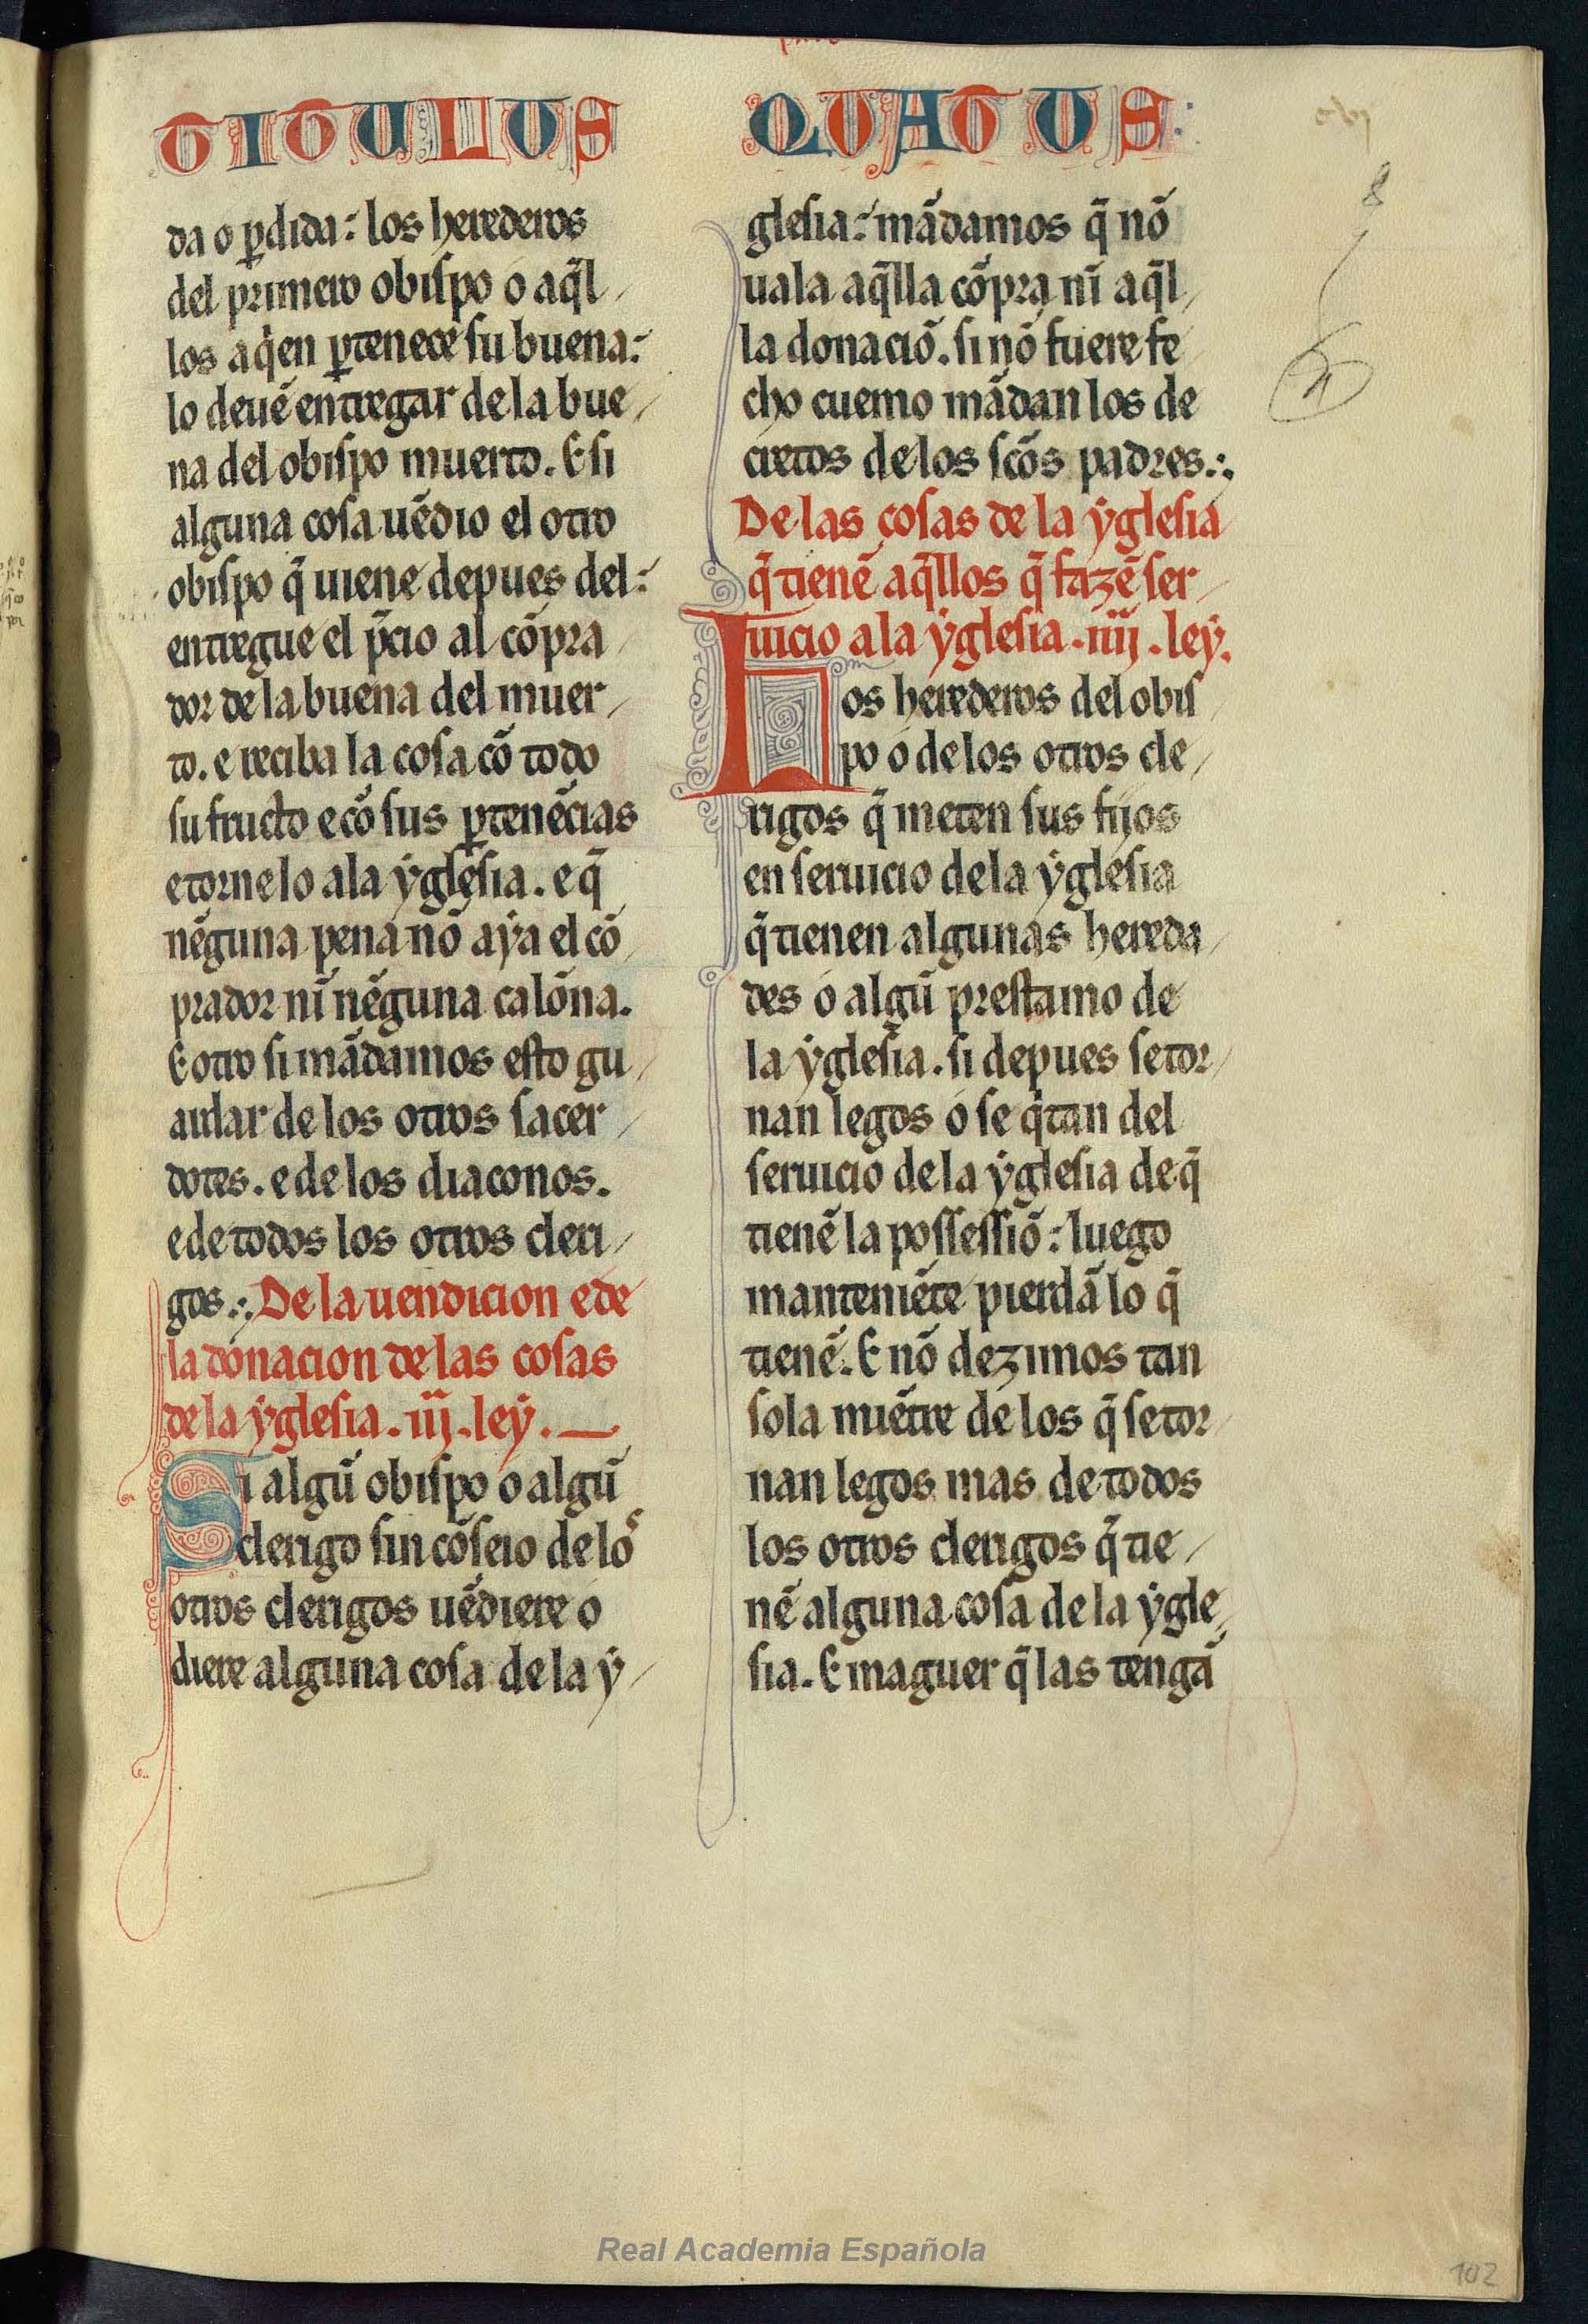 TITULUS
da o ꝑdida: los herederos
del primero obispo o aq̃l
los aqͥen ꝑtenece su buena:
lo deuẽ entregar de la bue
na del obispo muerto. E si
alguna cosa uẽdio el otro
obispo q̃ uiene depues del:
entregue el p̃cio al cõpra
dor de la buena del muer
to. e reciba la cosa cõ todo
su fructo e cõ sus ꝑtenẽcias
e torne lo a la ẏglesia. e q̃
nẽguna pena nõ aẏa el cõ
prador nĩ nẽguna calõna.
E otro si mãdamos esto gu
ardar de los otros sacer
dotes. e de los diaconos.
e de todos los otros cleri
gos:. De la uendicion e de
la donacion de las cosas
de la ẏglesia. iij. leẏ.
Si algũ obispo o algũ
clerigo sin cõseio de loˢ
otros clerigos uẽdiere o
diere alguna cosa de la ẏ
QUATUS
glesia: mãdamos q̃ nõ
uala aq̃lla cõpra nĩ aq̃l
la donaciõ. si nõ fuere fe
cho cuemo mãdan los de
cretos de los scõs padres:.
De las cosas de la ẏglesia
q̃ tienẽ aq̃llos q̃ fazẽ ser
uicio a la ẏglesia. iiij. leẏ.
Los herederos del obis
po o de los otros cle
rigos q̃ meten sus fijos
en seruicio de la ẏglesia
q̃ tienen algunas hereda
des o algũ prestamo de
la ẏglesia. si depues se tor
nan legos o se qͥtan del
seruicio de la ẏglesia de q̃
tienẽ la possessiõ: luego
manteniẽte pierdã lo q̃
tienẽ. E nõ dezimos tan
sola miẽtre de los q̃ se tor
nan legos mas de todos
los otros clerigos q̃ tie
nẽ alguna cosa de la ẏgle
sia. E maguer q̃ las tengã
Real Academia Española
102